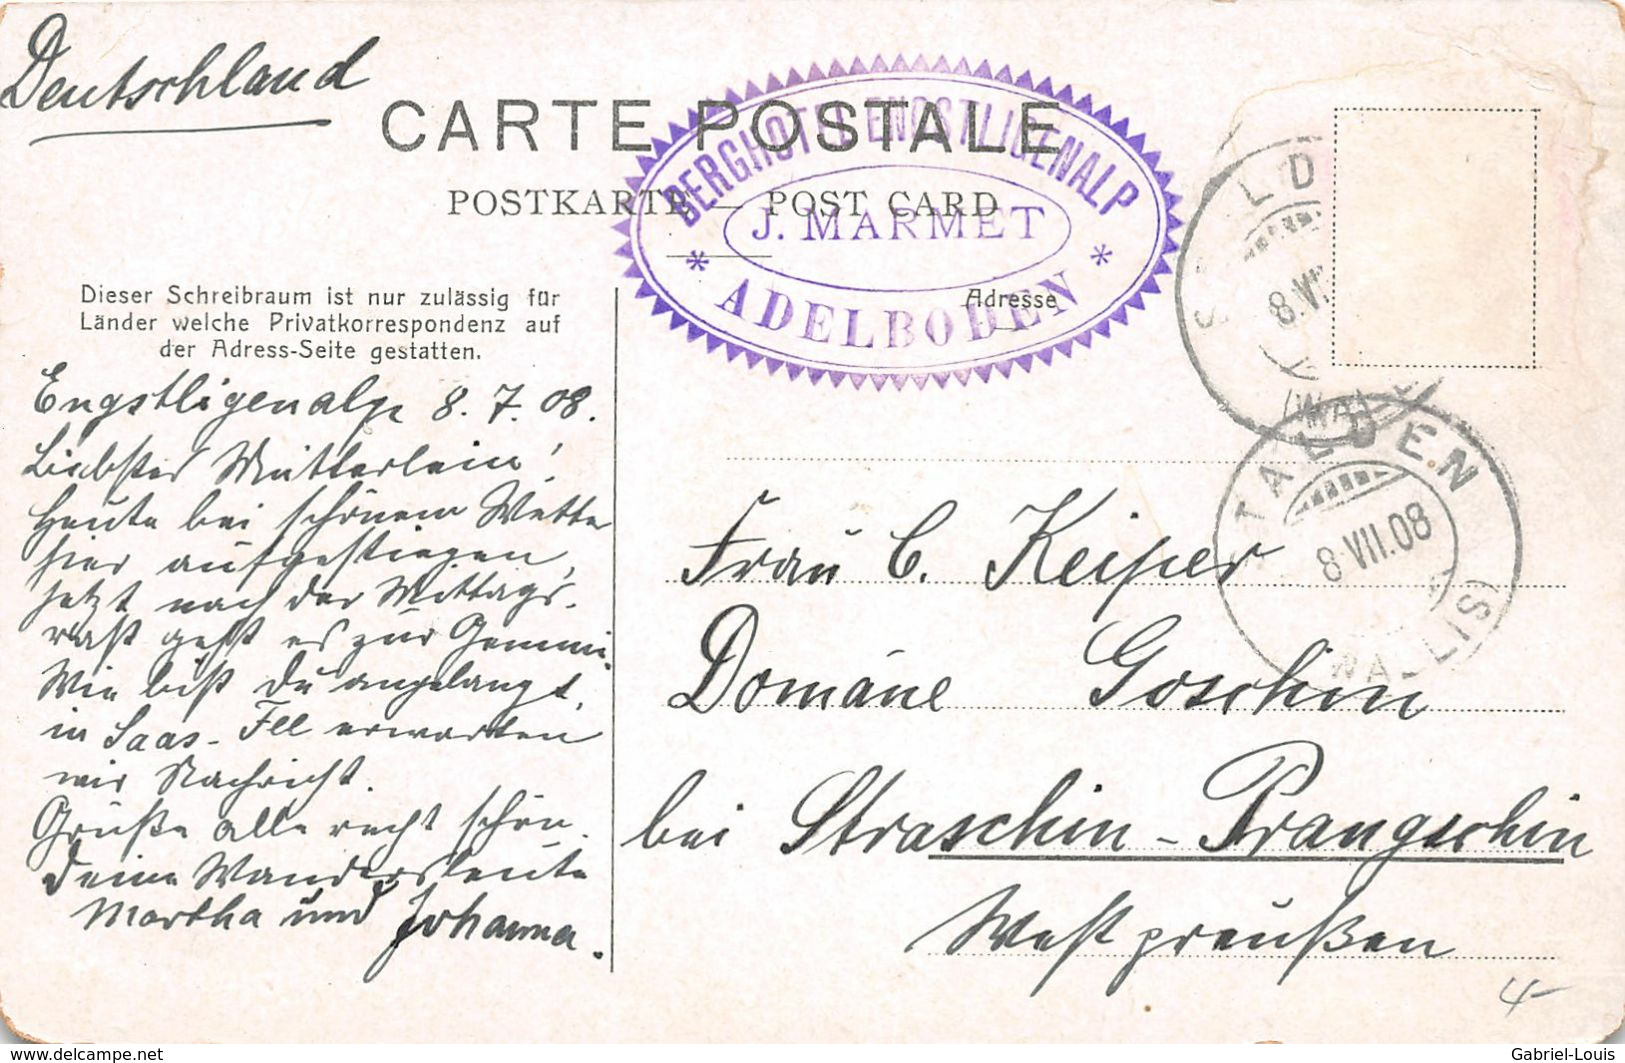 Deutschland
CARTE POSTALE
POSTKARTE — POST CARD
BERGHOTEL ENGSTLIGENALP
J. MARMET
* ADELBODEN *
Dieser Schreibraum ist nur zulässig für
Länder welche Privatkorrespondenz auf
der Adress-Seite gestatten.
Adresse
STALDEN
8.VII
(WA
STALDEN
8.VII.08
(WALLIS)
Engstligenalp 8. 7. 08.
Liebstes Mütterlein!
Heute bei schönem Wetter
hier aufgestiegen,
jetzt nach der Mittags-
rast geht es zur Gemmi.
Wie bist Du angelangt,
in Saas-Fee erwarten
wir Nachricht.
Grüße alle recht schön.
Deine Wandersleute
Martha und Johanna.
Frau C. Keiper
Domäne Goschin
bei Straschin-Prangschin
Westpreußen
4-
www.delcampe.net
Gabriel-Louis